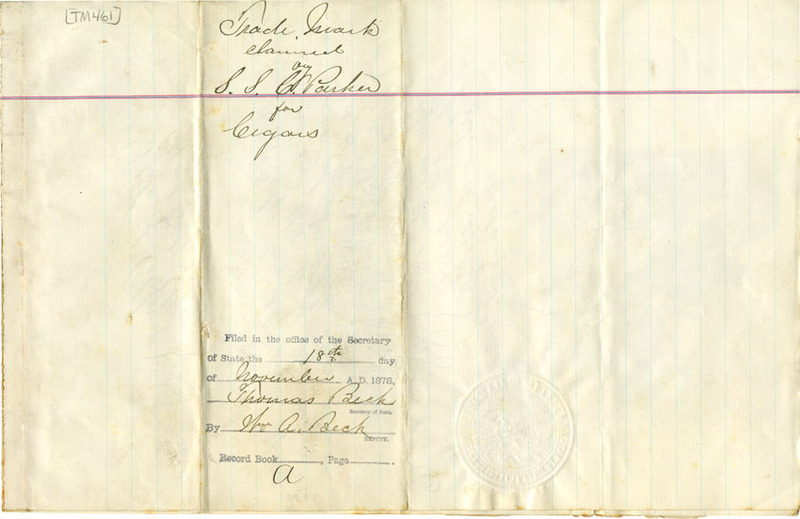 [TM461]
Trade Mark
claimed
by
S. S. A. Parker
for
Cigars
Filed in the office of the Secretary
of State the 18th day
of November A.D. 1878,
Thomas Beck
Secretary of State.
By Wm A. Beck
DEPUTY.
Record Book , Page .
A